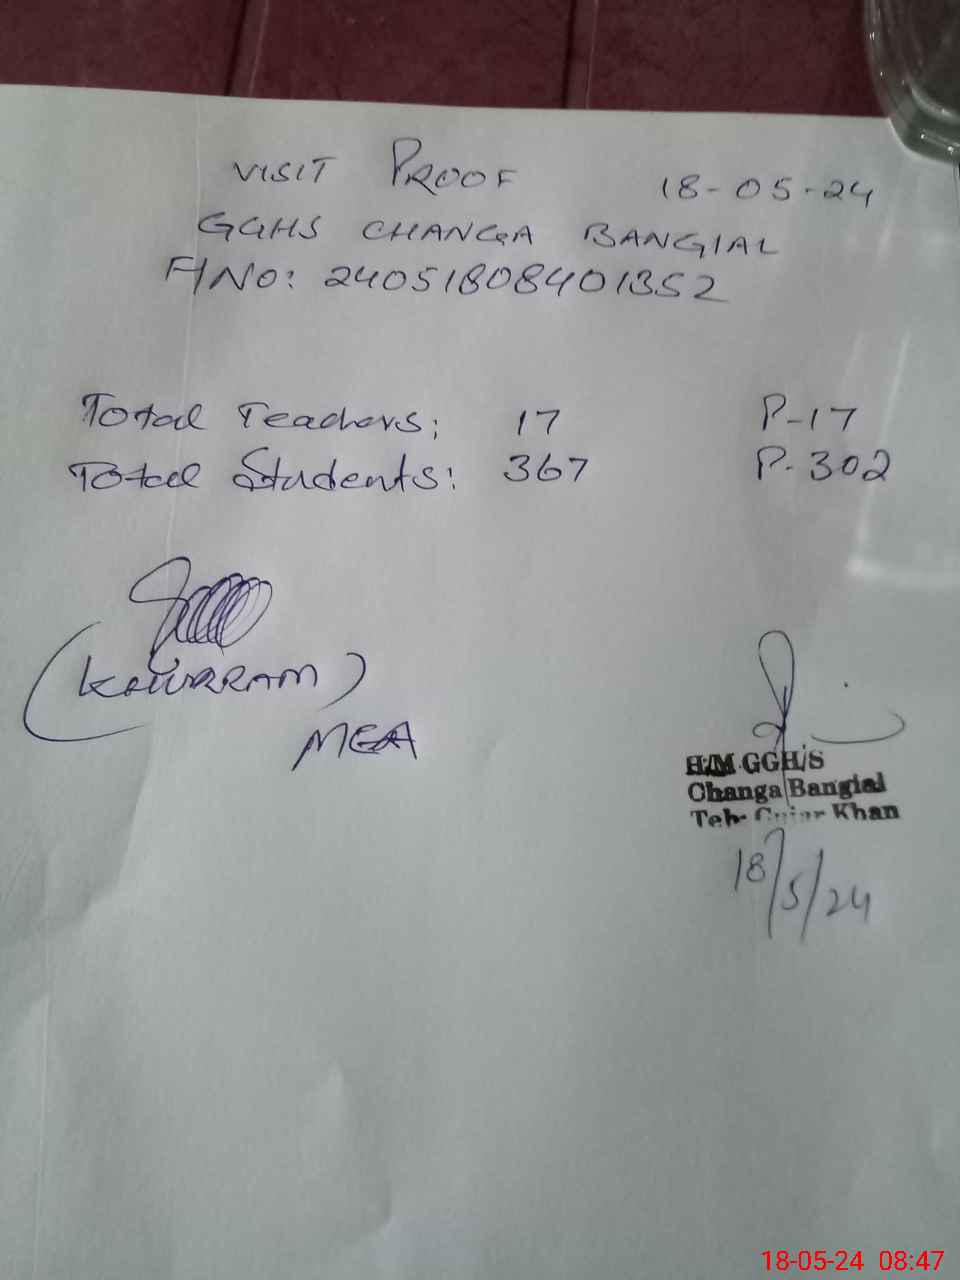 VISIT PROOF 18-05-24
GGHS CHANGA BANGIAL
F/NO: 24051808401352
Total Teachers: 17 P-17
Total Students: 367 P-302
(KHURRAM)
MEA
H/M GGH/S
Changa Bangial
Teh- Gujar Khan
18/5/24
18-05-24 08:47